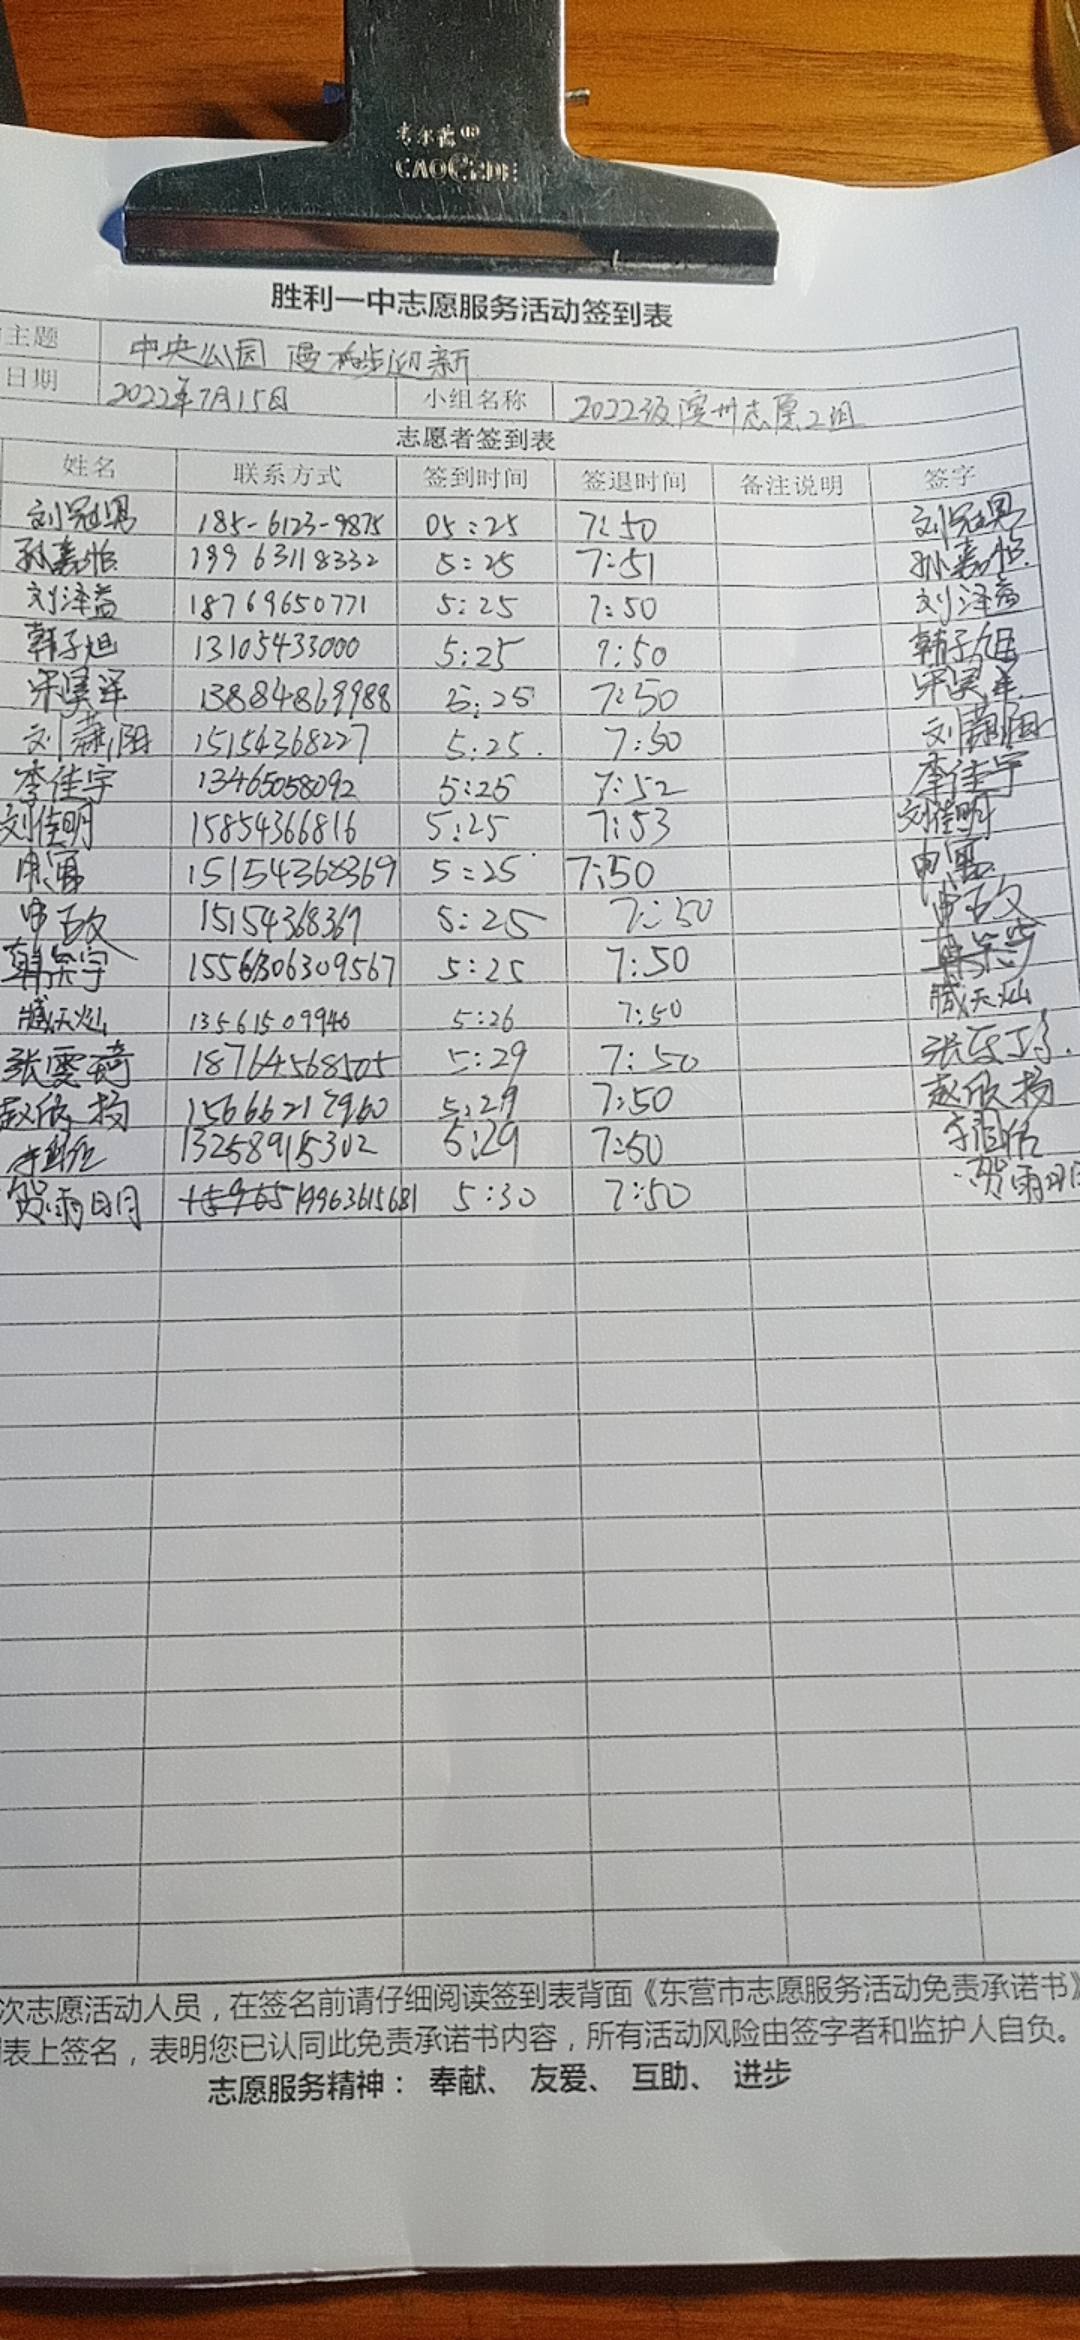 CAOCEDE
胜利一中志愿服务活动签到表
主题 中央公园 迎新
日期 2022年7月15日 小组名称 2022级滨州志愿2组
志愿者签到表
姓名 联系方式 签到时间 签退时间 备注说明 签字
刘冠男 185-6123-9875 05:25 7:50 刘冠男
孙嘉怡 19963118332 5:25 7:51 孙嘉怡
刘泽益 18769650771 5:25 7:50 刘泽益
韩子旭 13105433000 5:25 7:50 韩子旭
宋昊洋 13884869988 5:25 7:50 宋昊洋
刘潇阳 15154368227 5:25 7:50 刘潇阳
李佳宇 13465058092 5:25 7:52 李佳宇
刘佳明 15854366816 5:25 7:53 刘佳明
申 15154368369 5:25 7:50 申
申政 15154368369 5:25 7:50 申政
韩宗宇 5:25 7:50
臧天灿 13561509940 5:26 7:50 臧天灿
张雯琦 18764568505 5:29 7:50 张
赵欣扬 15666217960 5:29 7:50 赵欣扬
13258915302 5:29 7:50
贺雨明 19963615681 5:30 7:50 贺雨明
次志愿活动人员，在签名前请仔细阅读签到表背面《东营市志愿服务活动免责承诺书》
表上签名，表明您已认同此免责承诺书内容，所有活动风险由签字者和监护人自负。
志愿服务精神： 奉献、 友爱、 互助、 进步